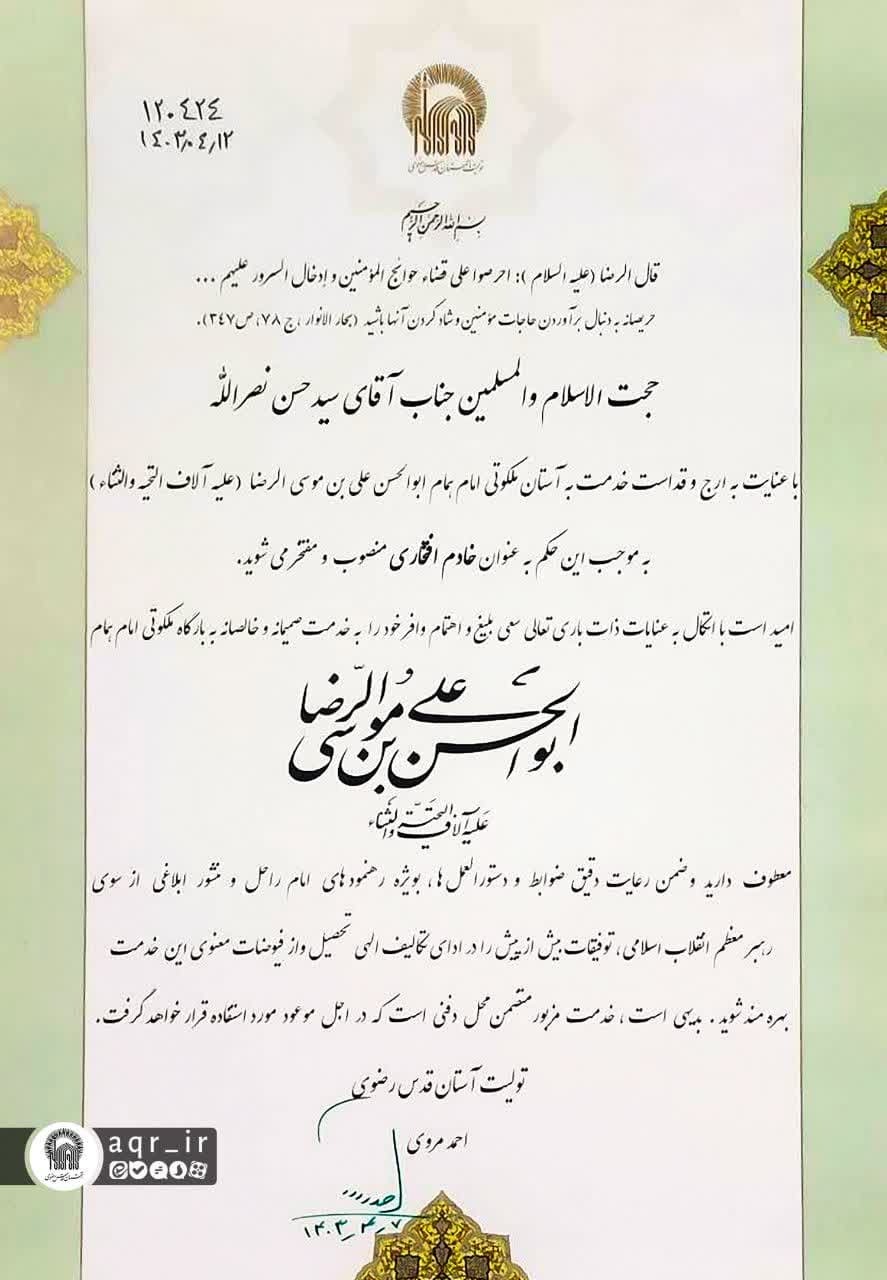 ۱۲۰۴۲۴
۱۴۰۳٫۰۴٫۱۲
تولیت آستان قدس رضوی
بسم الله الرحمن الرحیم
قال الرضا (علیه السلام): احرصوا علی قضاء حوائج المؤمنین و إدخال السرور علیهم ...
حریصانه به دنبال برآوردن حاجات مؤمنین و شاد کردن آنها باشید (بحار الانوار، ج ۷۸، ص ۳۴۷).
حجت الاسلام والمسلمین جناب آقای سید حسن نصرالله
با عنایت به ارج و قداست خدمت به آستان ملکوتی امام همام ابوالحسن علی بن موسی الرضا (علیه آلاف التحیه والثناء)
به موجب این حکم به عنوان خادم افتخاری منصوب و مفتخر می شوید.
امید است با اتکال به عنایات ذات باری تعالی سعی بلیغ و اهتمام وافر خود را به خدمت صمیمانه و خالصانه به بارگاه ملکوتی امام همام
ابوالحسن علی بن موسی الرضا
علیه آلاف التحیة والثناء
معطوف دارید و ضمن رعایت دقیق ضوابط و دستورالعمل ها، بویژه رهنمودهای امام راحل و منشور ابلاغی از سوی
رهبر معظم انقلاب اسلامی، توفیقات بیش از پیش را در ادای تکالیف الهی تحصیل و از فیوضات معنوی این خدمت
بهره مند شوید. بدیهی است، خدمت مزبور متضمن محل دفنی است که در اجل موعود مورد استفاده قرار خواهد گرفت.
تولیت آستان قدس رضوی
احمد مروی
۱۴۰۳٫۴٫۷
aqr_ir